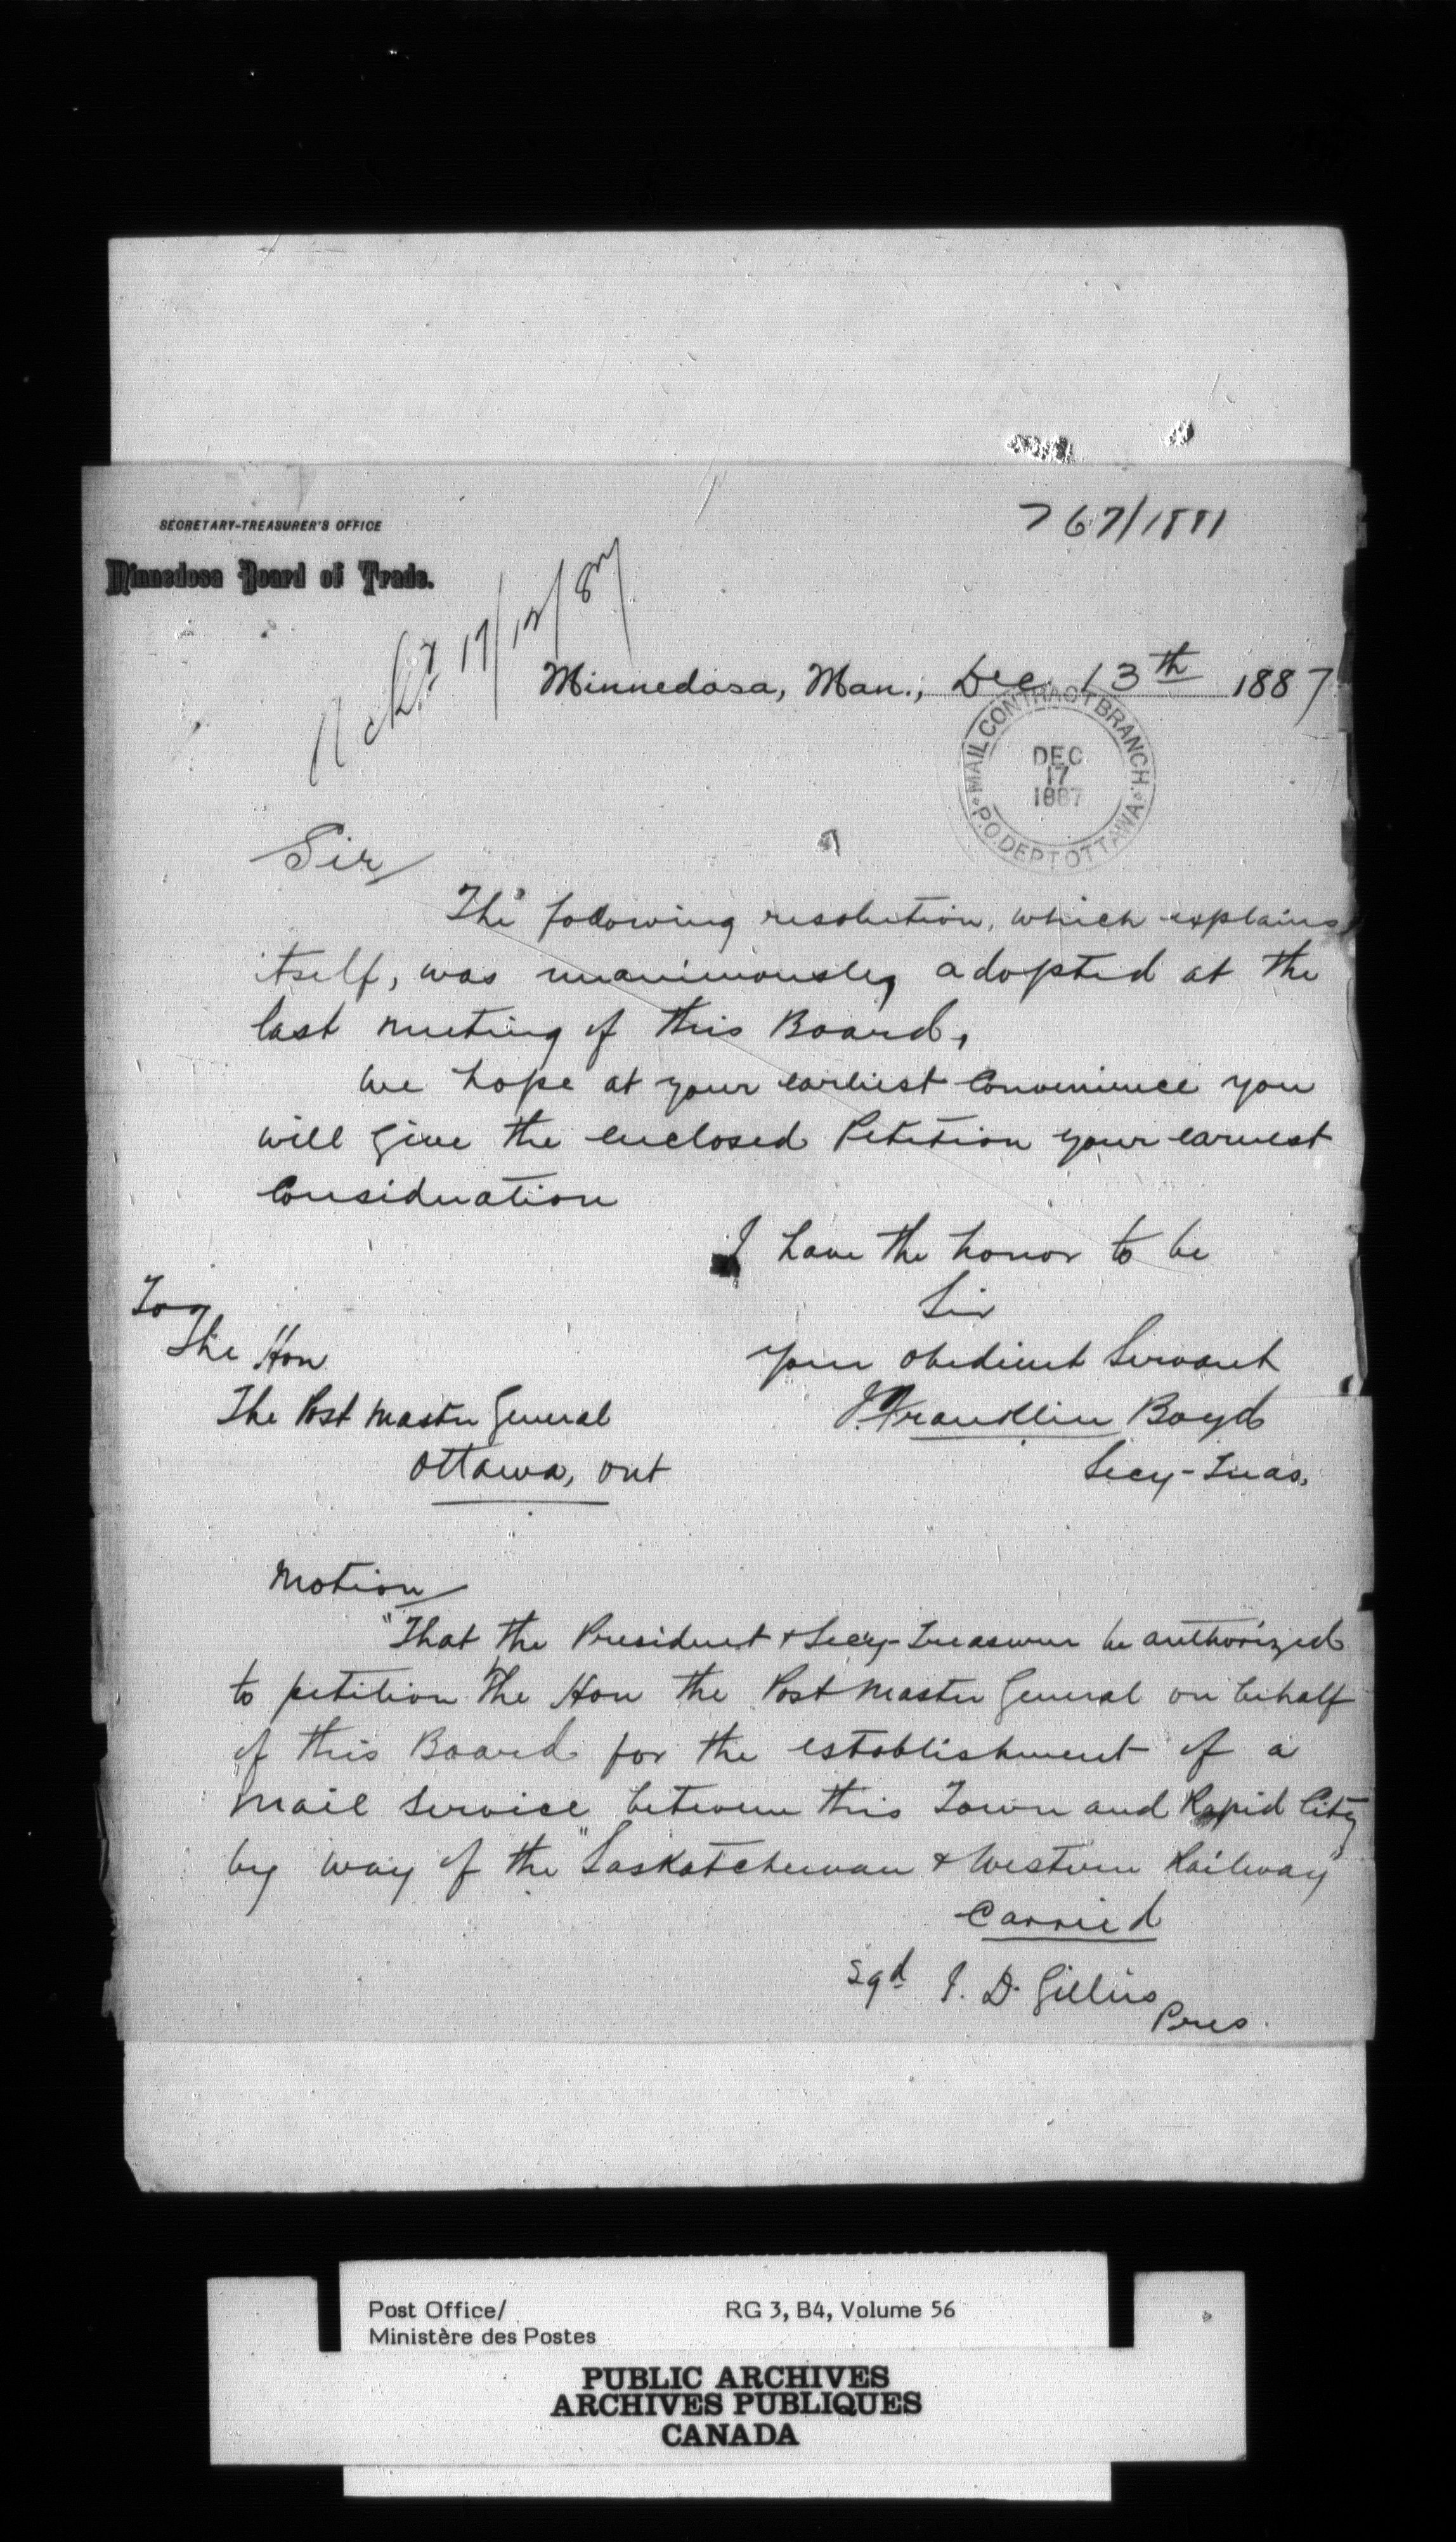 767/1881
SECRETARY-TREASURER'S OFFICE
Minnedosa Board of Trade.
Ackd 17/12/87
Minnedosa, Man., Dec 13th 1887
MAIL CONTRACT BRANCH
DEC
17
1887
P.O. DEPT OTTAWA
Sir
The following resolution, which explains
itself, was unanimously adopted at the
last meeting of this Board,
We hope at your earliest convenience you
will give the enclosed Petition your earnest
consideration
I have the honor to be
Sir
Your obedient Servant
J. Franklin Boyd
Secy-Treas.
To
The Hon
The Post Master General
Ottawa, Ont
Motion
"That the President & Secy-Treasurer be authorized
to petition The Hon the Post Master General on behalf
of this Board for the establishment of a
Mail Service between this Town and Rapid City
by way of the "Saskatchewan & Western Railway"
Carried
Sgd J. D. Gillies
Pres.
Post Office/
Ministère des Postes
RG 3, B4, Volume 56
PUBLIC ARCHIVES
ARCHIVES PUBLIQUES
CANADA